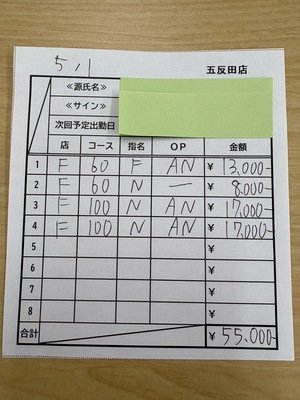 5/1 五反田店
≪源氏名≫
≪サイン≫
次回予定出勤日
店 コース 指名 OP 金額
1 F 60 F AN ¥13,000-
2 F 60 N — ¥8,000-
3 F 100 N AN ¥17,000-
4 F 100 N AN ¥17,000-
5 ¥
6 ¥
7 ¥
8 ¥
合計 ¥55,000-